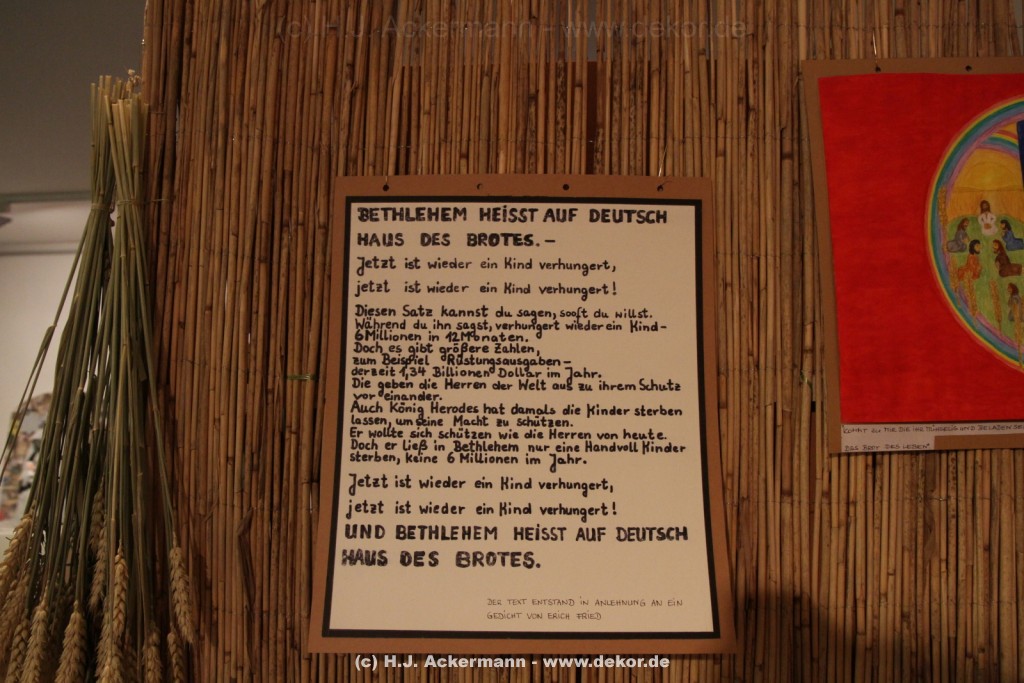 (c) H.J. Ackermann - www.dekor.de
BETHLEHEM HEISST AUF DEUTSCH
HAUS DES BROTES.-
Jetzt ist wieder ein Kind verhungert,
jetzt ist wieder ein Kind verhungert!
Diesen Satz kannst du sagen, sooft du willst.
Während du ihn sagst, verhungert wieder ein Kind-
6 Millionen in 12 Monaten.
Doch es gibt größere Zahlen,
zum Beispiel Rüstungsausgaben-
derzeit 1,34 Billionen Dollar im Jahr.
Die geben die Herren der Welt aus zu ihrem Schutz
vor einander.
Auch König Herodes hat damals die Kinder sterben
lassen, um seine Macht zu schützen.
Er wollte sich schützen wie die Herren von heute.
Doch er ließ in Bethlehem nur eine Handvoll Kinder
sterben, keine 6 Millionen im Jahr.
Jetzt ist wieder ein Kind verhungert,
jetzt ist wieder ein Kind verhungert!
UND BETHLEHEM HEISST AUF DEUTSCH
HAUS DES BROTES.
DER TEXT ENTSTAND IN ANLEHNUNG AN EIN
GEDICHT VON ERICH FRIED
UND BELADEN
DAS LEBEN"
(c) H.J. Ackermann - www.dekor.de